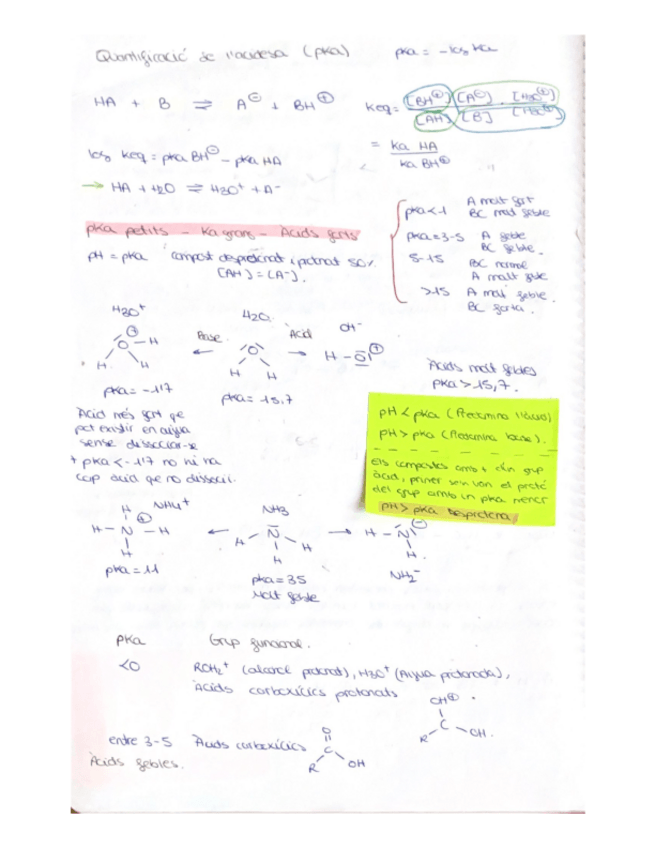 Quantificació de l'acidesa (pka)   pka = -log ka
HA + B ⇌ A⊖ + BH⊕   Keq = [BH⊕] [A⊖] · [H3O⊕]
[AH] [B] [H3O⊕]
= Ka HA
Ka BH⊕
log Keq = pka BH⊕ - pka HA
→ HA + H2O ⇌ H3O+ + A-
pka petits - Ka grans - Àcids forts
pH = pka compost desprotonat i protonat 50%
[AH] = [A-].
pka<1 A molt fort
BC molt feble
pka=3-5 A feble
BC feble.
5-15 BC normal
A molt feble
>15 A molt feble.
BC forta.
H3O+   H2O   OH-
Base   Àcid
H O ⊕ H H   ←   O H H   →   H - O
pka = -1'7   pka = 15,7
Àcids molt febles
pka > 15,7.
Àcid més fort que
pot existir en aigua
sense dissociar-se
+ pka < -1'7 no hi ha
cap àcid que no dissociï.
pH < pka (Predomina l'àcid)
pH > pka (Predomina base).
Els compostos amb + d'un grup
àcid, primer se'n van el protó
del grup amb un pka menor
pH > pka desprotona
NH4+   NH3   NH2-
H - N ⊕ - H H H   ←   H N H H   →   H - N ⊖ H
pka = 11   pka = 35
Molt feble
pka   Grup funcional.
<0   ROH2+ (alcohol protonat), H3O+ (Aigua protonada),
Àcids carboxílics protonats
OH⊕
C
R   OH.
entre 3-5   Àcids carboxílics
Àcids febles.
O
C
R   OH